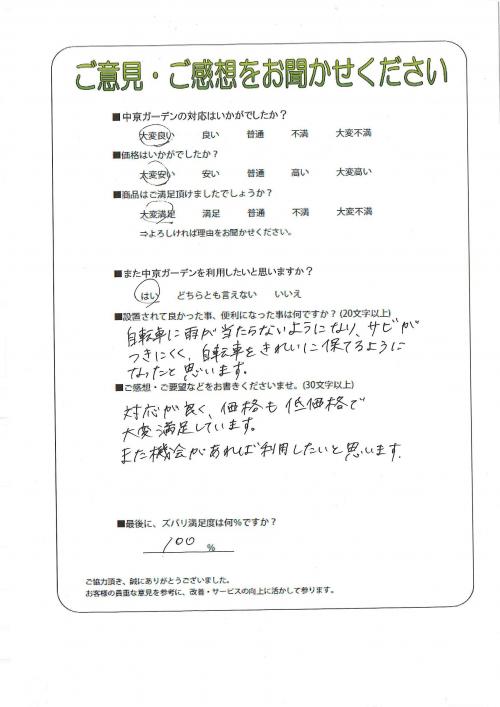 ご意見・ご感想をお聞かせください
■中京ガーデンの対応はいかがでしたか？
大変良い 良い 普通 不満 大変不満
■価格はいかがでしたか？
大変安い 安い 普通 高い 大変高い
■商品はご満足頂けましたでしょうか？
大変満足 満足 普通 不満 大変不満
⇒よろしければ理由をお聞かせください。
■また中京ガーデンを利用したいと思いますか？
はい どちらとも言えない いいえ
■設置されて良かった事、便利になった事は何ですか？(20文字以上)
自転車に雨が当たらないようになり、サビが
つきにくく、自転車をきれいに保てるように
なったと思います。
■ご感想・ご要望などをお書きくださいませ。(30文字以上)
対応が良く、価格も低価格で
大変満足しています。
また機会があれば利用したいと思います。
■最後に、ズバリ満足度は何%ですか？
100 %
ご協力頂き、誠にありがとうございました。
お客様の貴重な意見を参考に、改善・サービスの向上に活かして参ります。